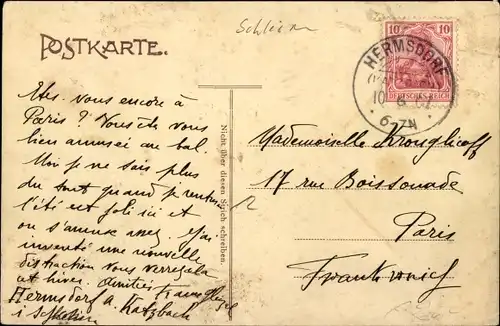 Schlesien
POSTKARTE.
10 10
DEUTSCHES REICH
HERMSDORF
10 8 07
6-7N
Etes-vous encore à
Paris? Vous êtes-vous
bien amusée au bal.
Moi je ne sais plus
du tout quand je rentre
l'été est joli ici et
on s'amuse assez. J'ai
inventé une nouvelle
distraction vous verrez
et hiver. Amitiés
Hermsdorf a. Katzbach
i Schlesien
Nicht über diesen Strich schreiben.
Mademoiselle Krouglicoff
17 rue Boissonade
Paris
Frankreich